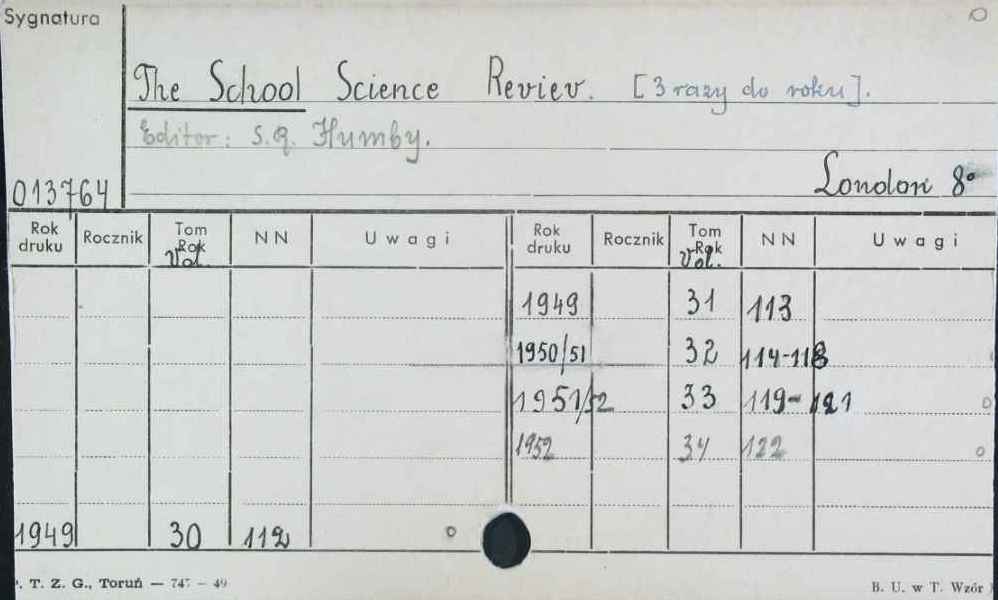 Sygnatura
The School Science Reviev. [3 razy do roku].
Editor: S.G. Humby.
013764
London 8°
Rok druku Rocznik Tom Rok Vol. NN Uwagi Rok druku Rocznik Tom Rok Vol. NN Uwagi
1949 31 113
1950/51 32 114-118
1951/52 33 119-121
1952 34 122
1949 30 112
. T. Z. G., Toruń — 747 — 49
B. U. w T. Wzór